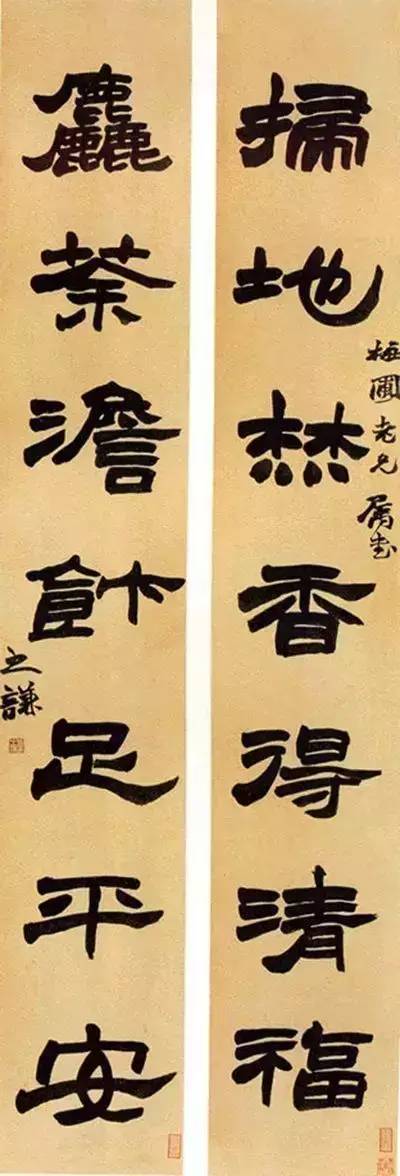 梅圃老兄屬書
掃地焚香得清福
麤茶澹飰足平安
之謙